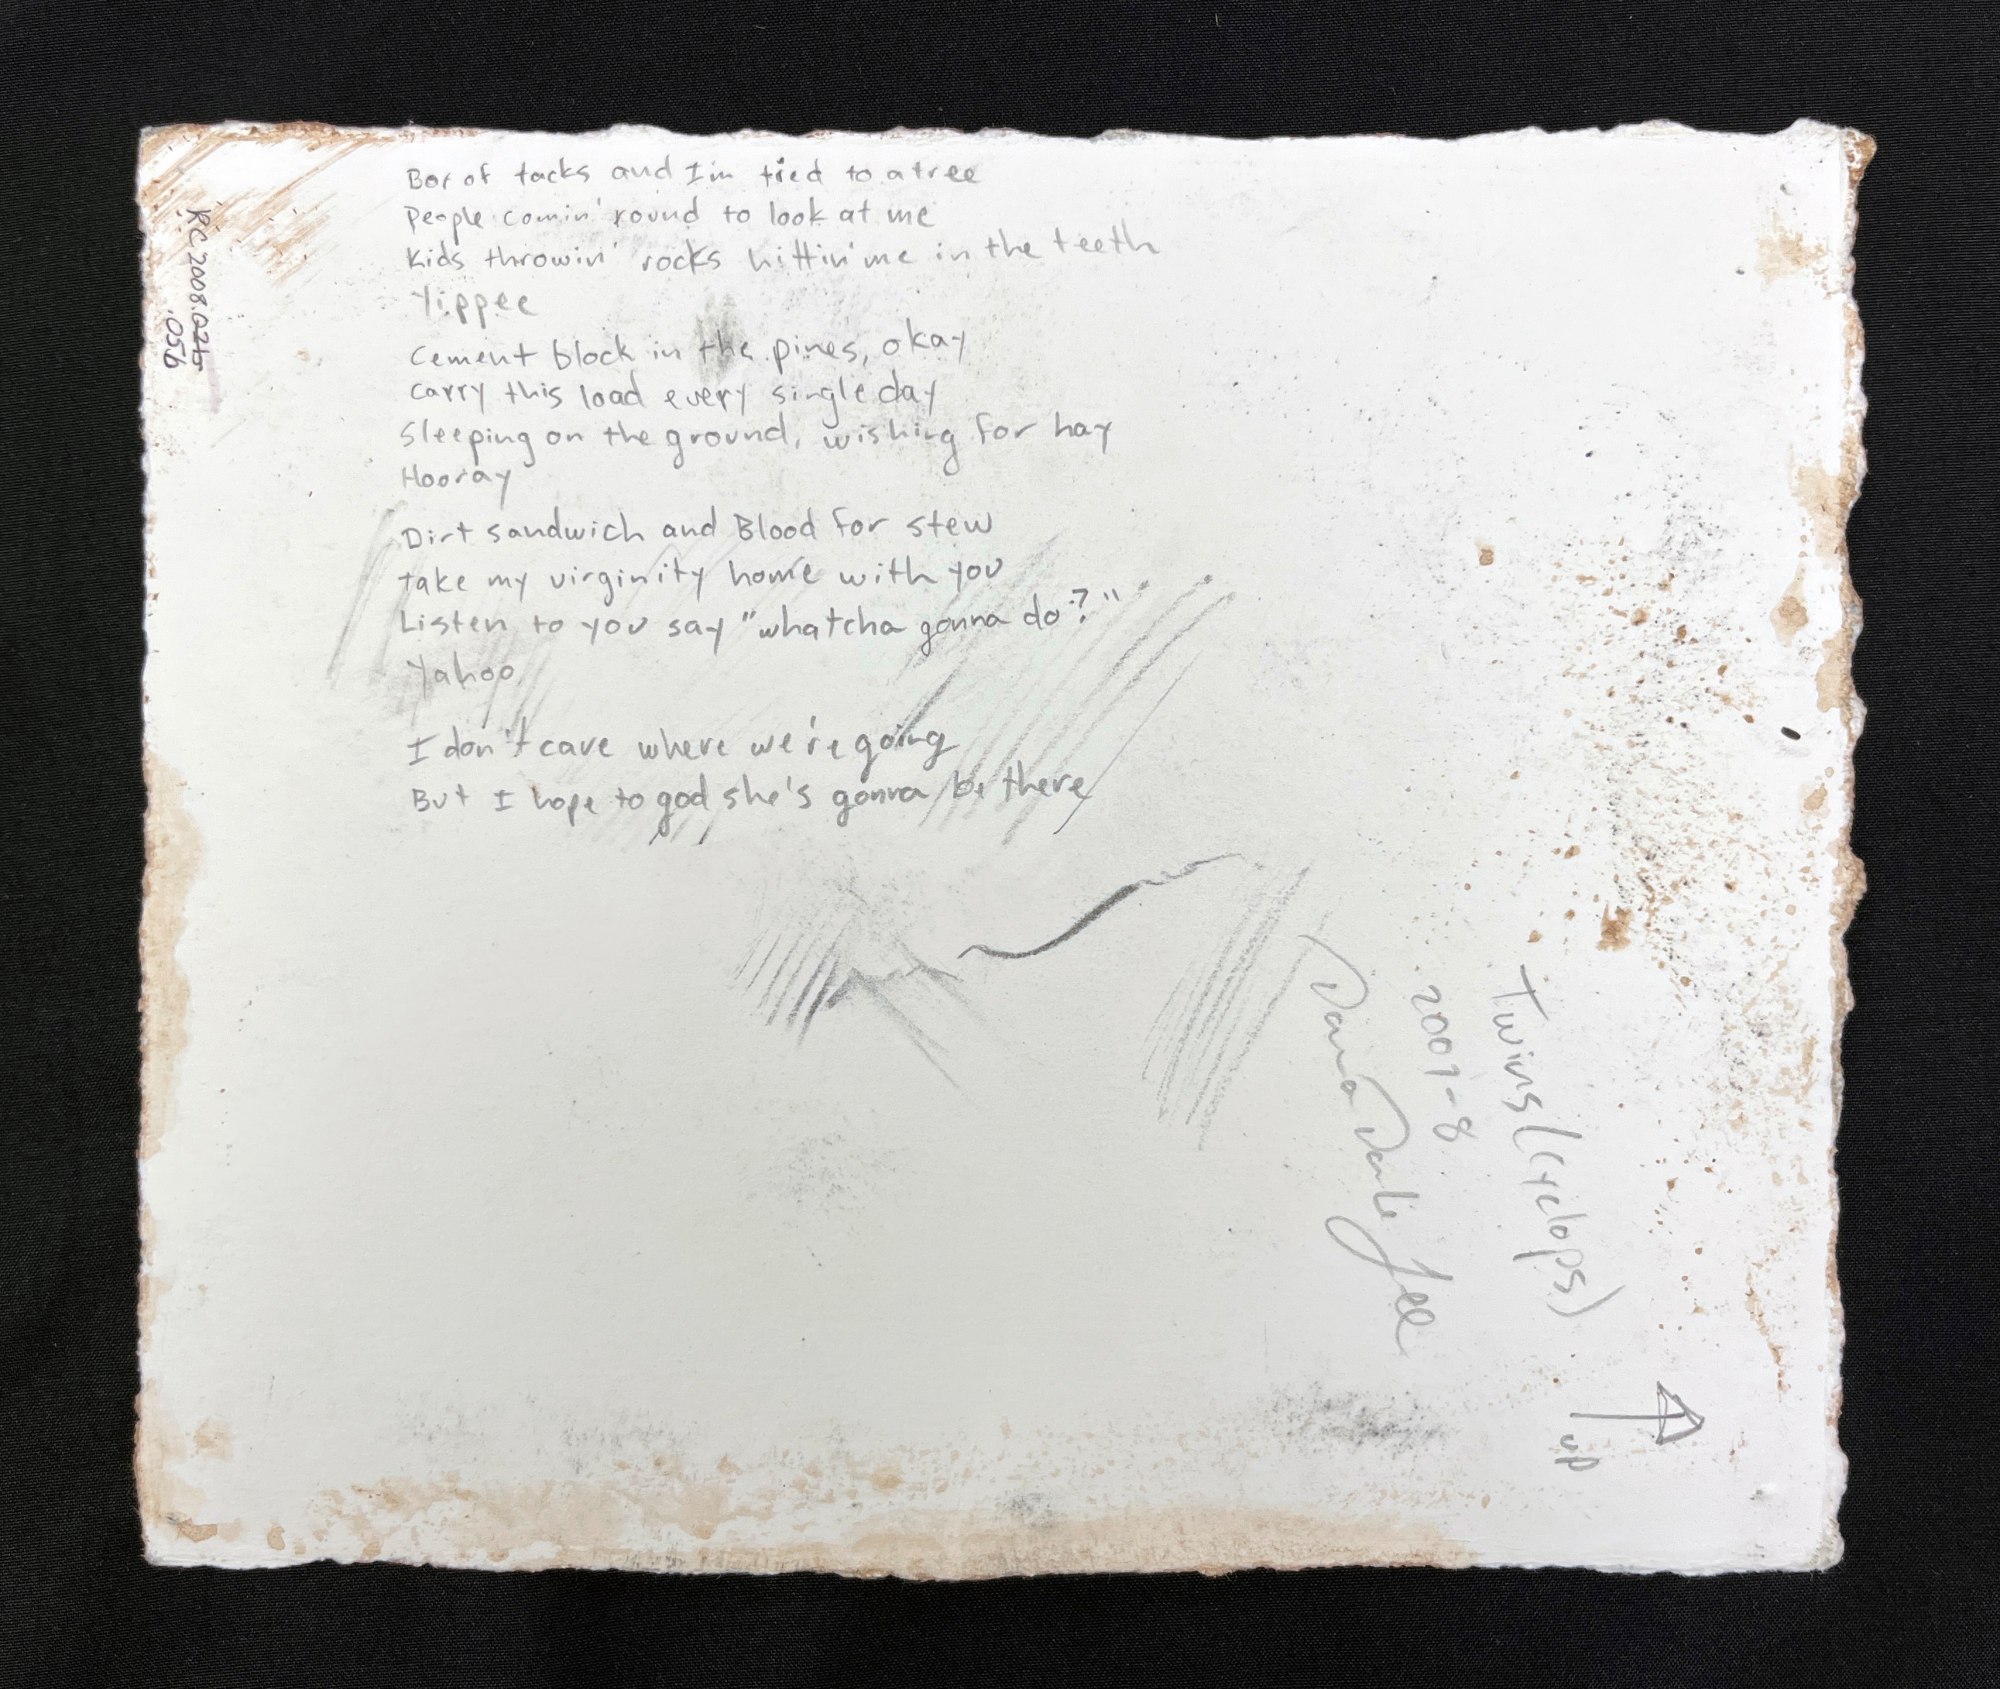 Box of tacks and I'm tied to a tree
People comin' round to look at me
Kids throwin' rocks hittin' me in the teeth
Yippee
Cement block in the pines, okay
Carry this load every single day
Sleeping on the ground, wishing for hay
Hooray
Dirt sandwich and Blood for stew
take my virginity home with you
Listen to you say "whatcha gonna do?"
Yahoo
I don't care where we're going
But I hope to god she's gonna be there
Twins (cyclops)
2007-8
Dana Dale Lee
up
RC2008.026
.056